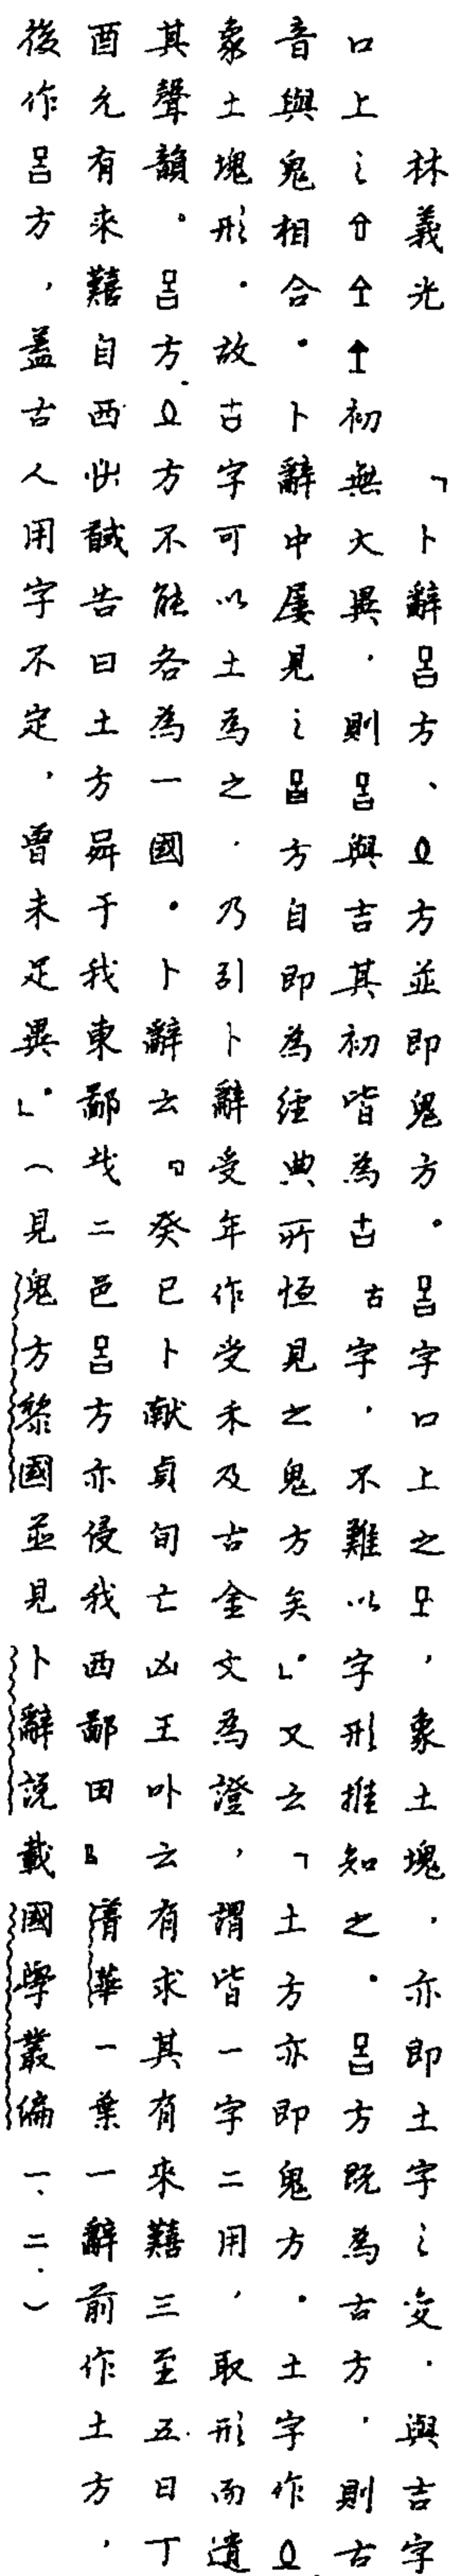 林義光　「卜辭𠮷方、土方並即鬼方。𠮷字口上之，象土塊，亦即土字之变．與吉字
口上之初無大異，則與吉其初皆為古字，不難以字形推知之。方既為古方，則古
音與鬼相合。卜辭中屢見之方自即為經典所恒見之鬼方矣。」又云「土方亦即鬼方。土字作
象土塊形．故古字可以土為之．乃引卜辭受年作受禾及古金文為證，謂皆一字二用，取形而遺
其聲韻。方方不能各為一國。卜辭云『癸巳卜献貞旬亡凶王卟云有求其有來囏三至五日丁
酉允有來囏自西告曰土方于我東鄙𢦏二邑方亦侵我西鄙田』菁華一葉一辭前作土方，
後作方，蓋古人用字不定，曾未足異。」（見鬼方黎國並見卜辭説載國學叢编一、二．）